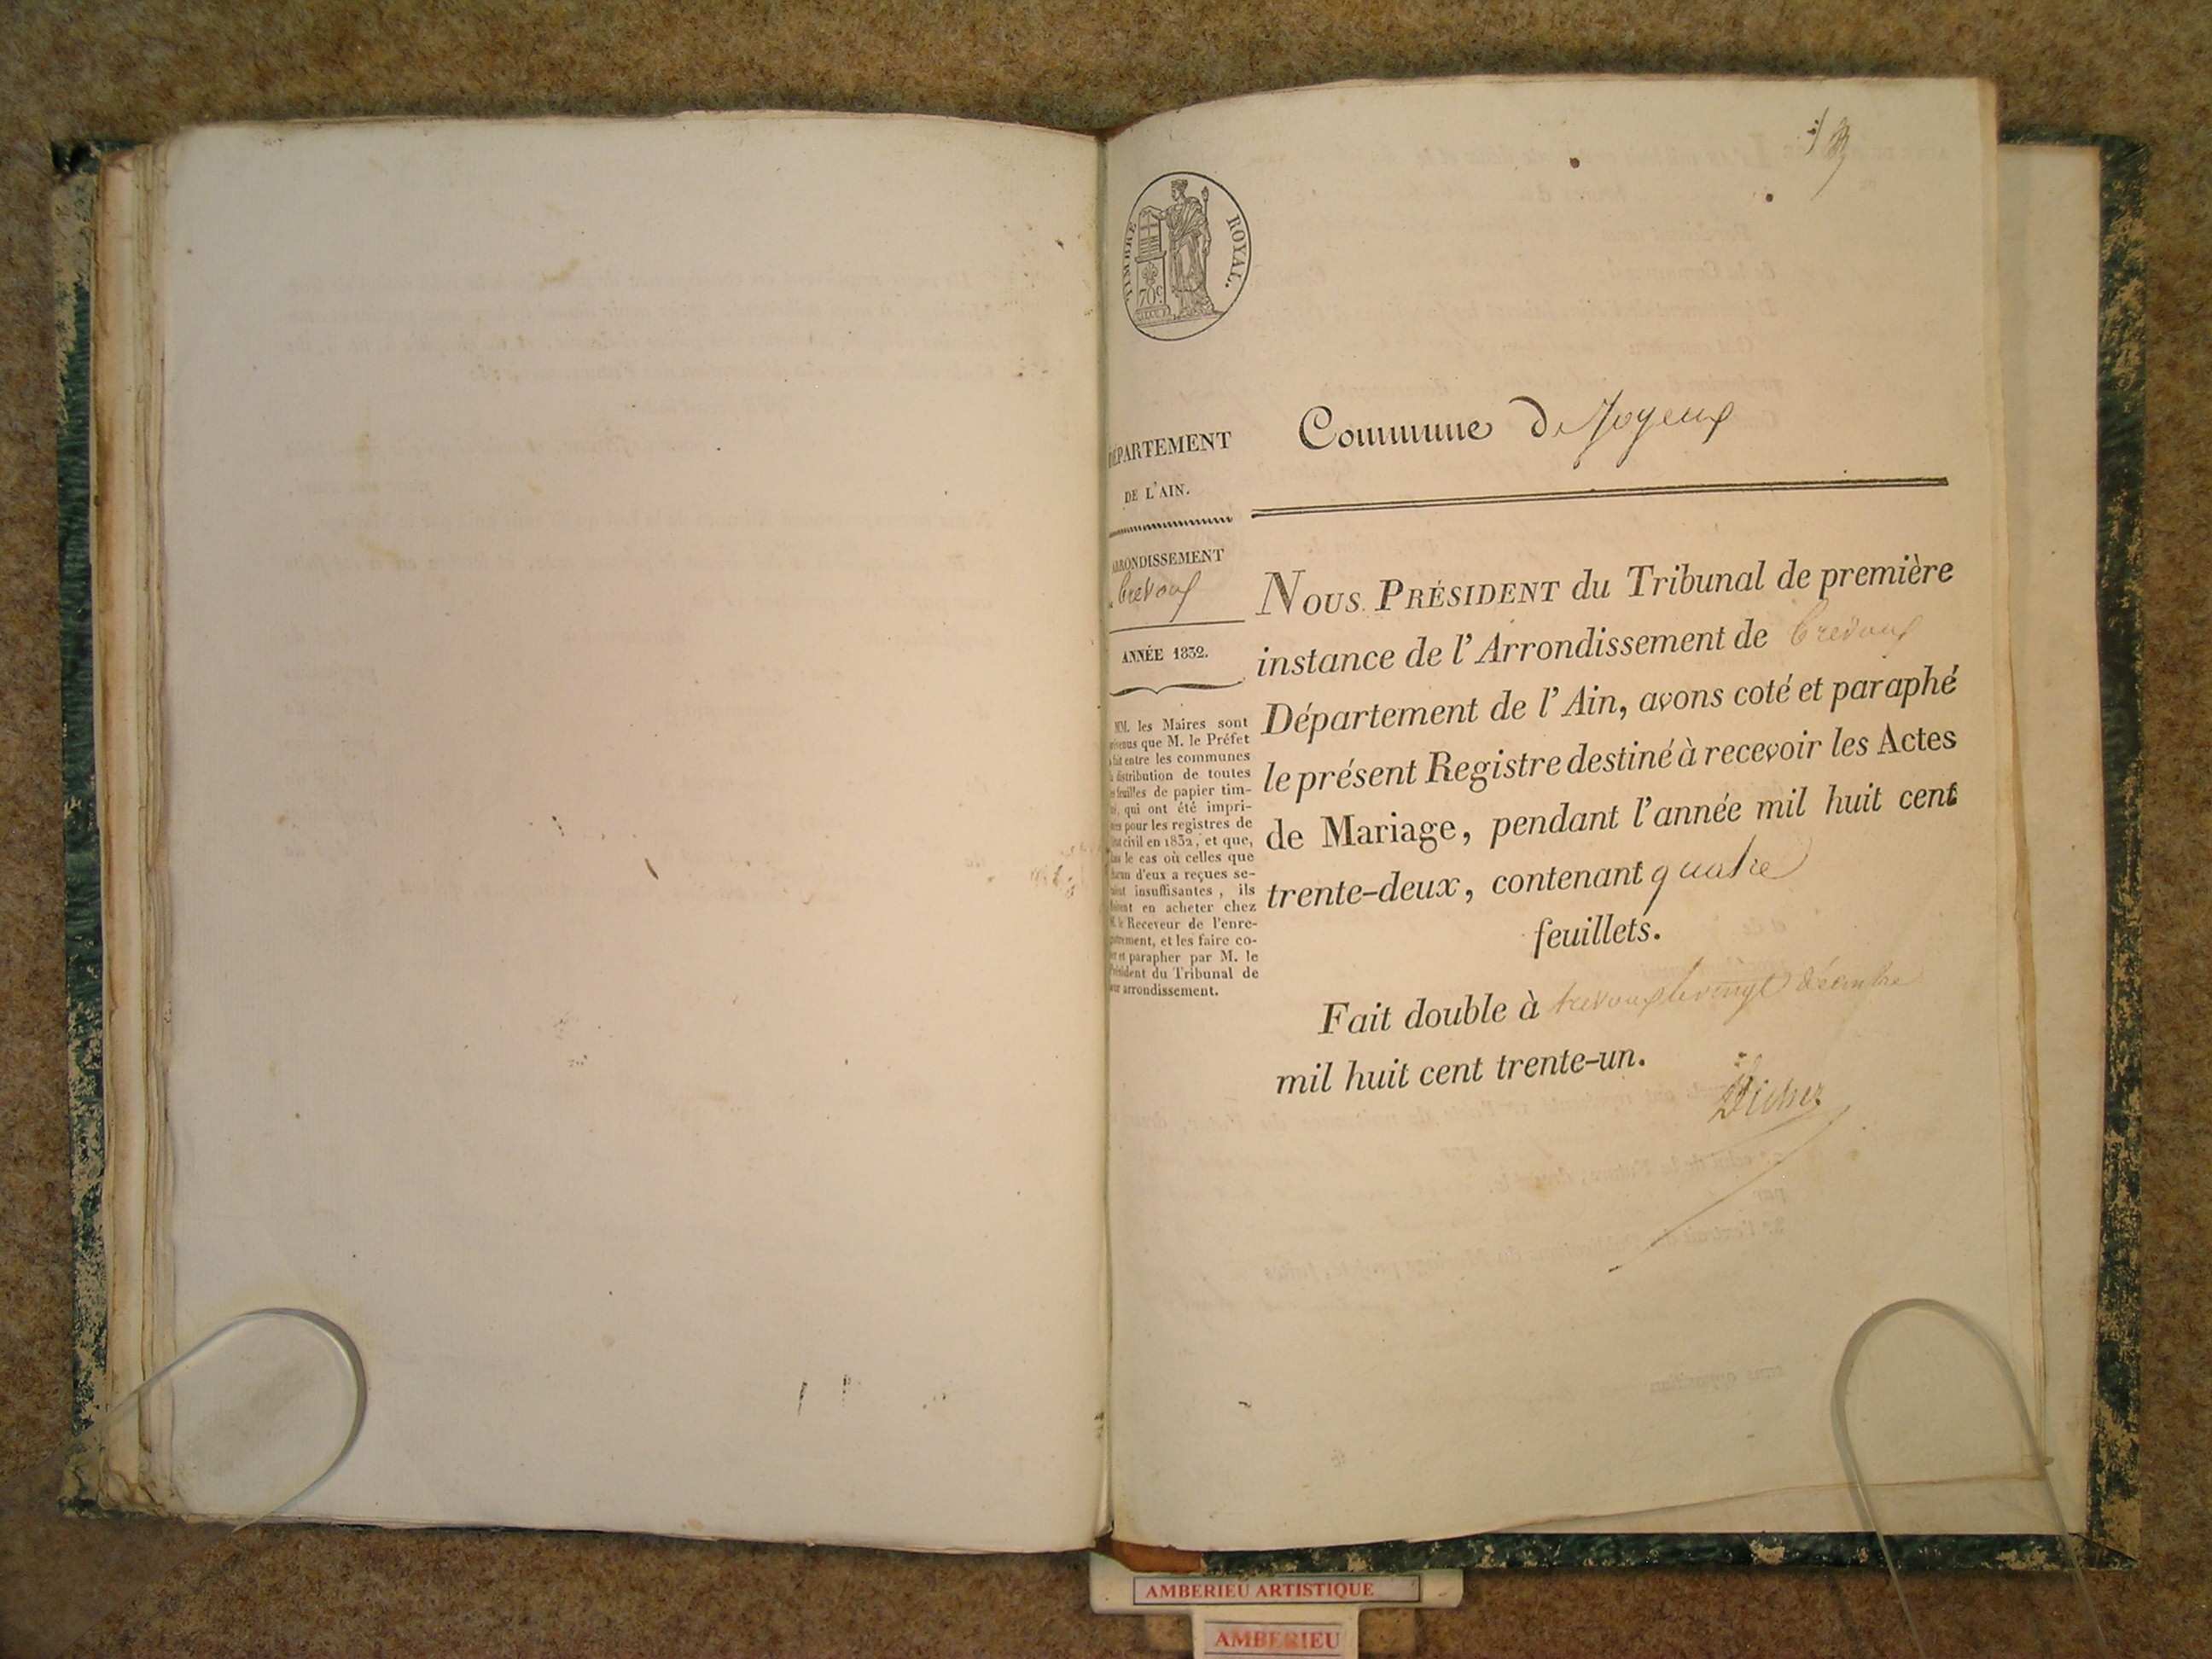 TIMBRE ROYAL.
70 c
DÉPARTEMENT
DE L'AIN.
ARRONDISSEMENT
de Trevoux
ANNÉE 1832.
MM. les Maires sont
prévenus que M. le Préfet
a fait entre les communes
la distribution de toutes
les feuilles de papier tim-
bré, qui ont été impri-
mées pour les registres de
l'état civil en 1832, et que,
dans le cas où celles que
chacun d'eux a reçues se-
raient insuffisantes, ils
doivent en acheter chez
M. le Receveur de l'enre-
gistrement, et les faire co-
ter et parapher par M. le
Président du Tribunal de
leur arrondissement.
Commune de Joyeux
NOUS PRÉSIDENT du Tribunal de première
instance de l'Arrondissement de Trevoux
Département de l'Ain, avons coté et paraphé
le présent Registre destiné à recevoir les Actes
de Mariage, pendant l'année mil huit cent
trente-deux, contenant quatre
feuillets.
Fait double à trevoux le vingt décembre
mil huit cent trente-un.
AMBERIEU ARTISTIQUE
AMBERIEU